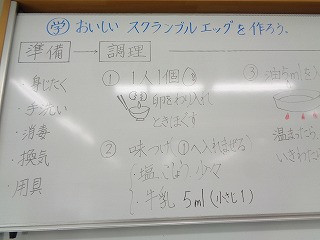 学 おいしい スクランブルエッグを作ろう。
準備 → 調理
・身じたく
・手洗い
・消毒
・換気
・用具
① 1人1個
卵をわり入れ
ときほぐす
② 味つけ ①へ入れまぜる
・塩、こしょう 少々
・牛乳 5ml (小さじ1)
③ 油5mlを
温まったら